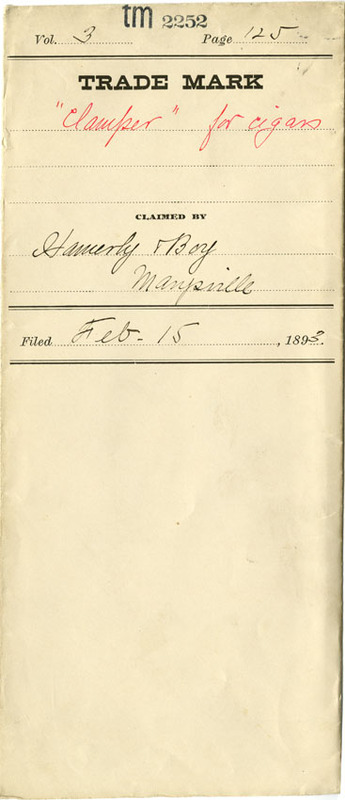 tm 2252
Vol. 3 Page 125
TRADE MARK
"Clamper" for cigars
CLAIMED BY
Hamerly & Boy
Marysville
Filed Feb. 15, 1893.